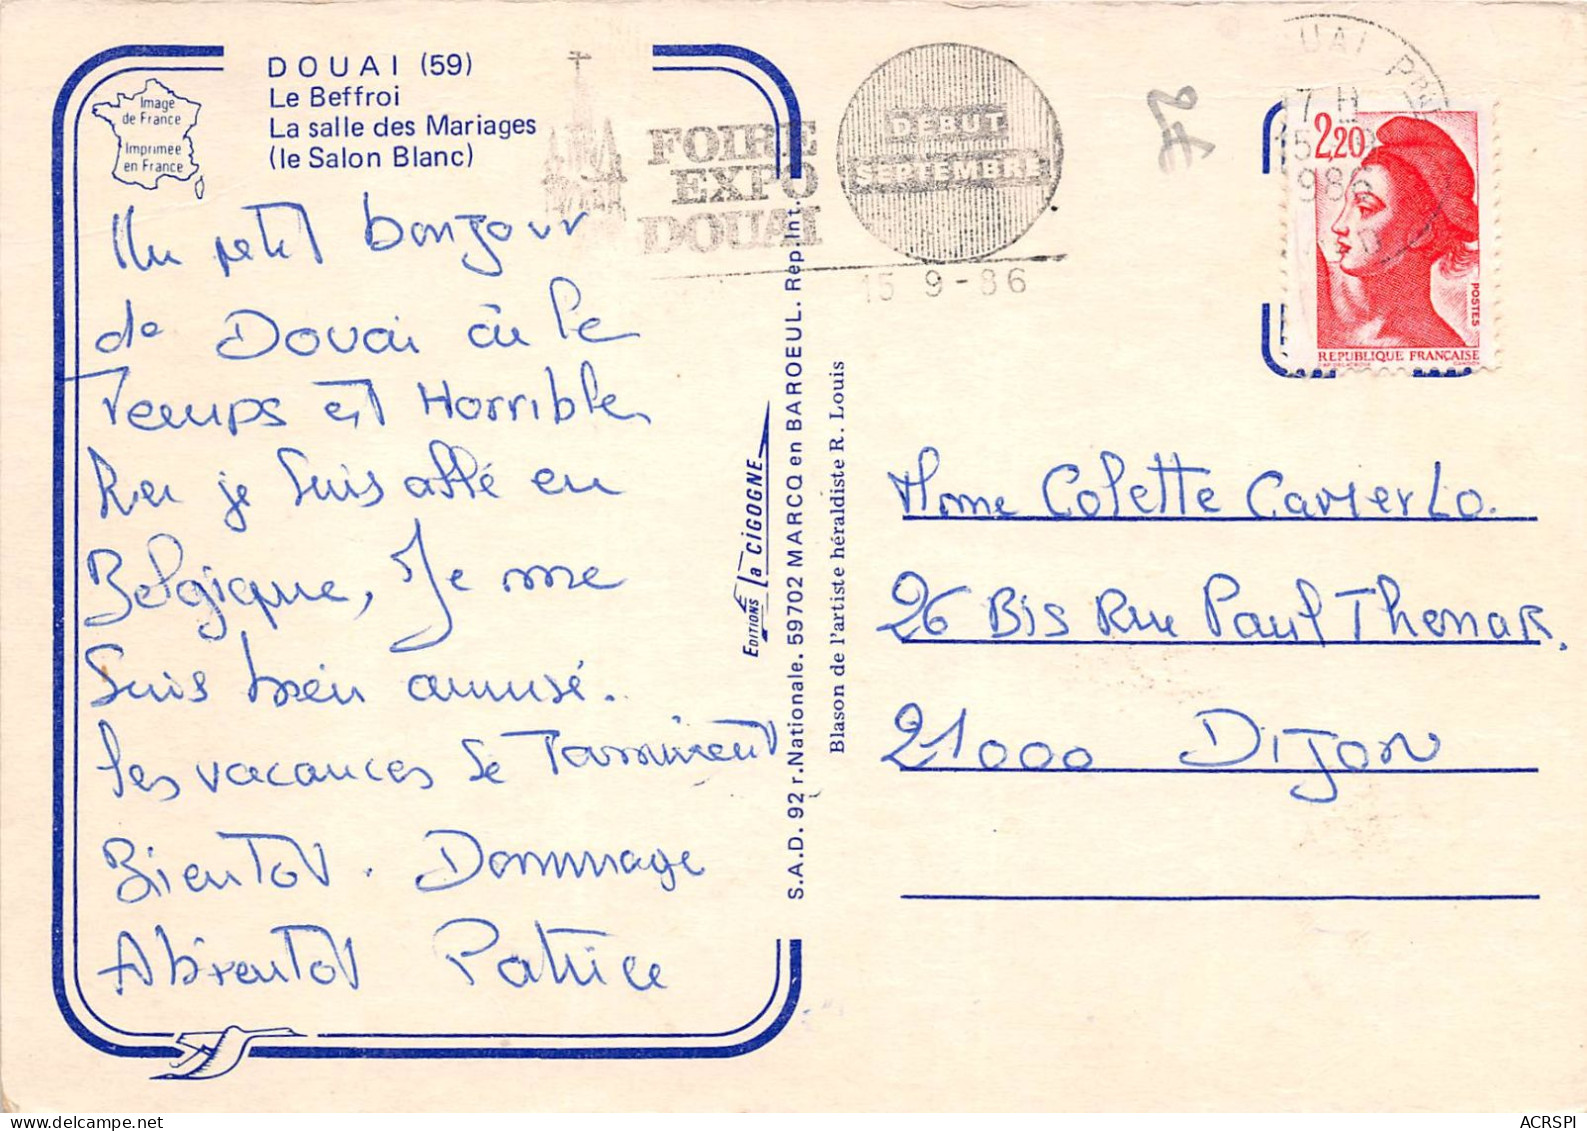 DOUAI (59)
Le Beffroi
La salle des Mariages
(le Salon Blanc)
Image
de France
Imprimée
en France
Un petit bonjour
de Douai où le
Temps est Horrible
je suis allé en
Belgique, Je me
suis bien amusé.
les vacances se Terminent
Bientot. Dommage
A bientot Patrice
FOIRE
EXPO
DOUAI
DÉBUT
SEPTEMBRE
15 9-86
EDITIONS la CIGOGNE
S.A.D. 92 r. Nationale. 59702 MARCQ en BAROEUL. Rep. Int.
Blason de l'artiste héraldiste R. Louis
UAI
7 H
15
1986
2,20
POSTES
REPUBLIQUE FRANÇAISE
Mme Colette
26 Bis Rue Paul Thenar.
21000 Dijon
ACRSPI